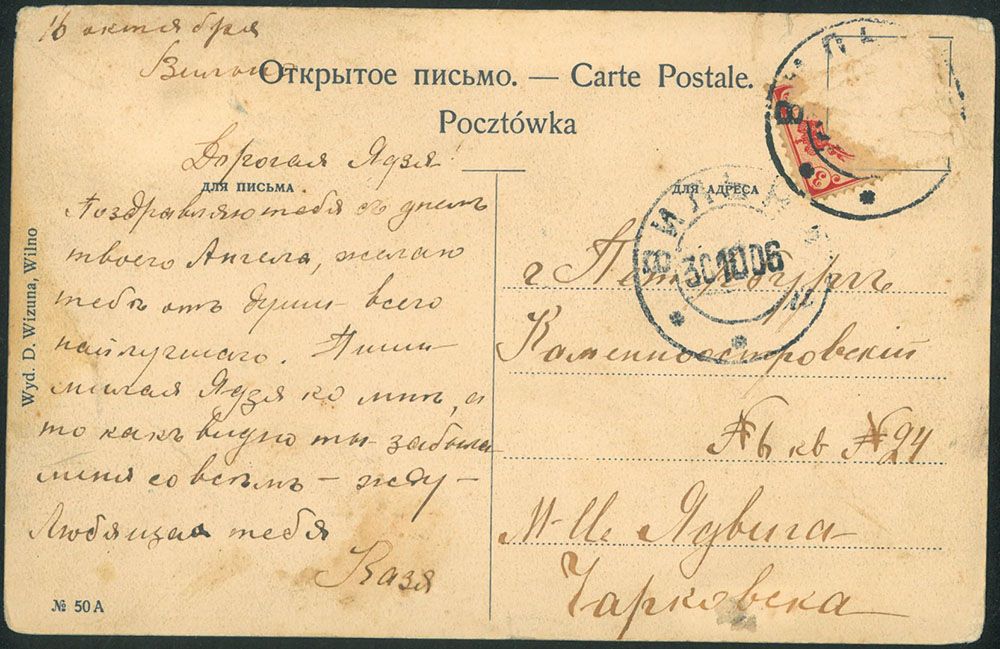 16 октября
Вильна
Открытое письмо. — Carte Postale.
Pocztówka
Дорогая Ядзя!
ДЛЯ ПИСЬМА
Поздравляю тебя съ днемъ
твоего Ангела, желаю
тебѣ отъ души всего
найлучшаго. Пиши
милая Ядзя ко мнѣ, а
то какъ видно ты забыла
меня совсѣмъ — жду —
Любящая тебя
Казя
№ 50 А
Wyd. D. Wizuna, Wilno
ДЛЯ АДРЕСА
ВИЛЬНА
30 10 06
г Петербургъ
Каменноостровскій
№ 6 кв № 24
М-lle Ядвига
Чарковска
3